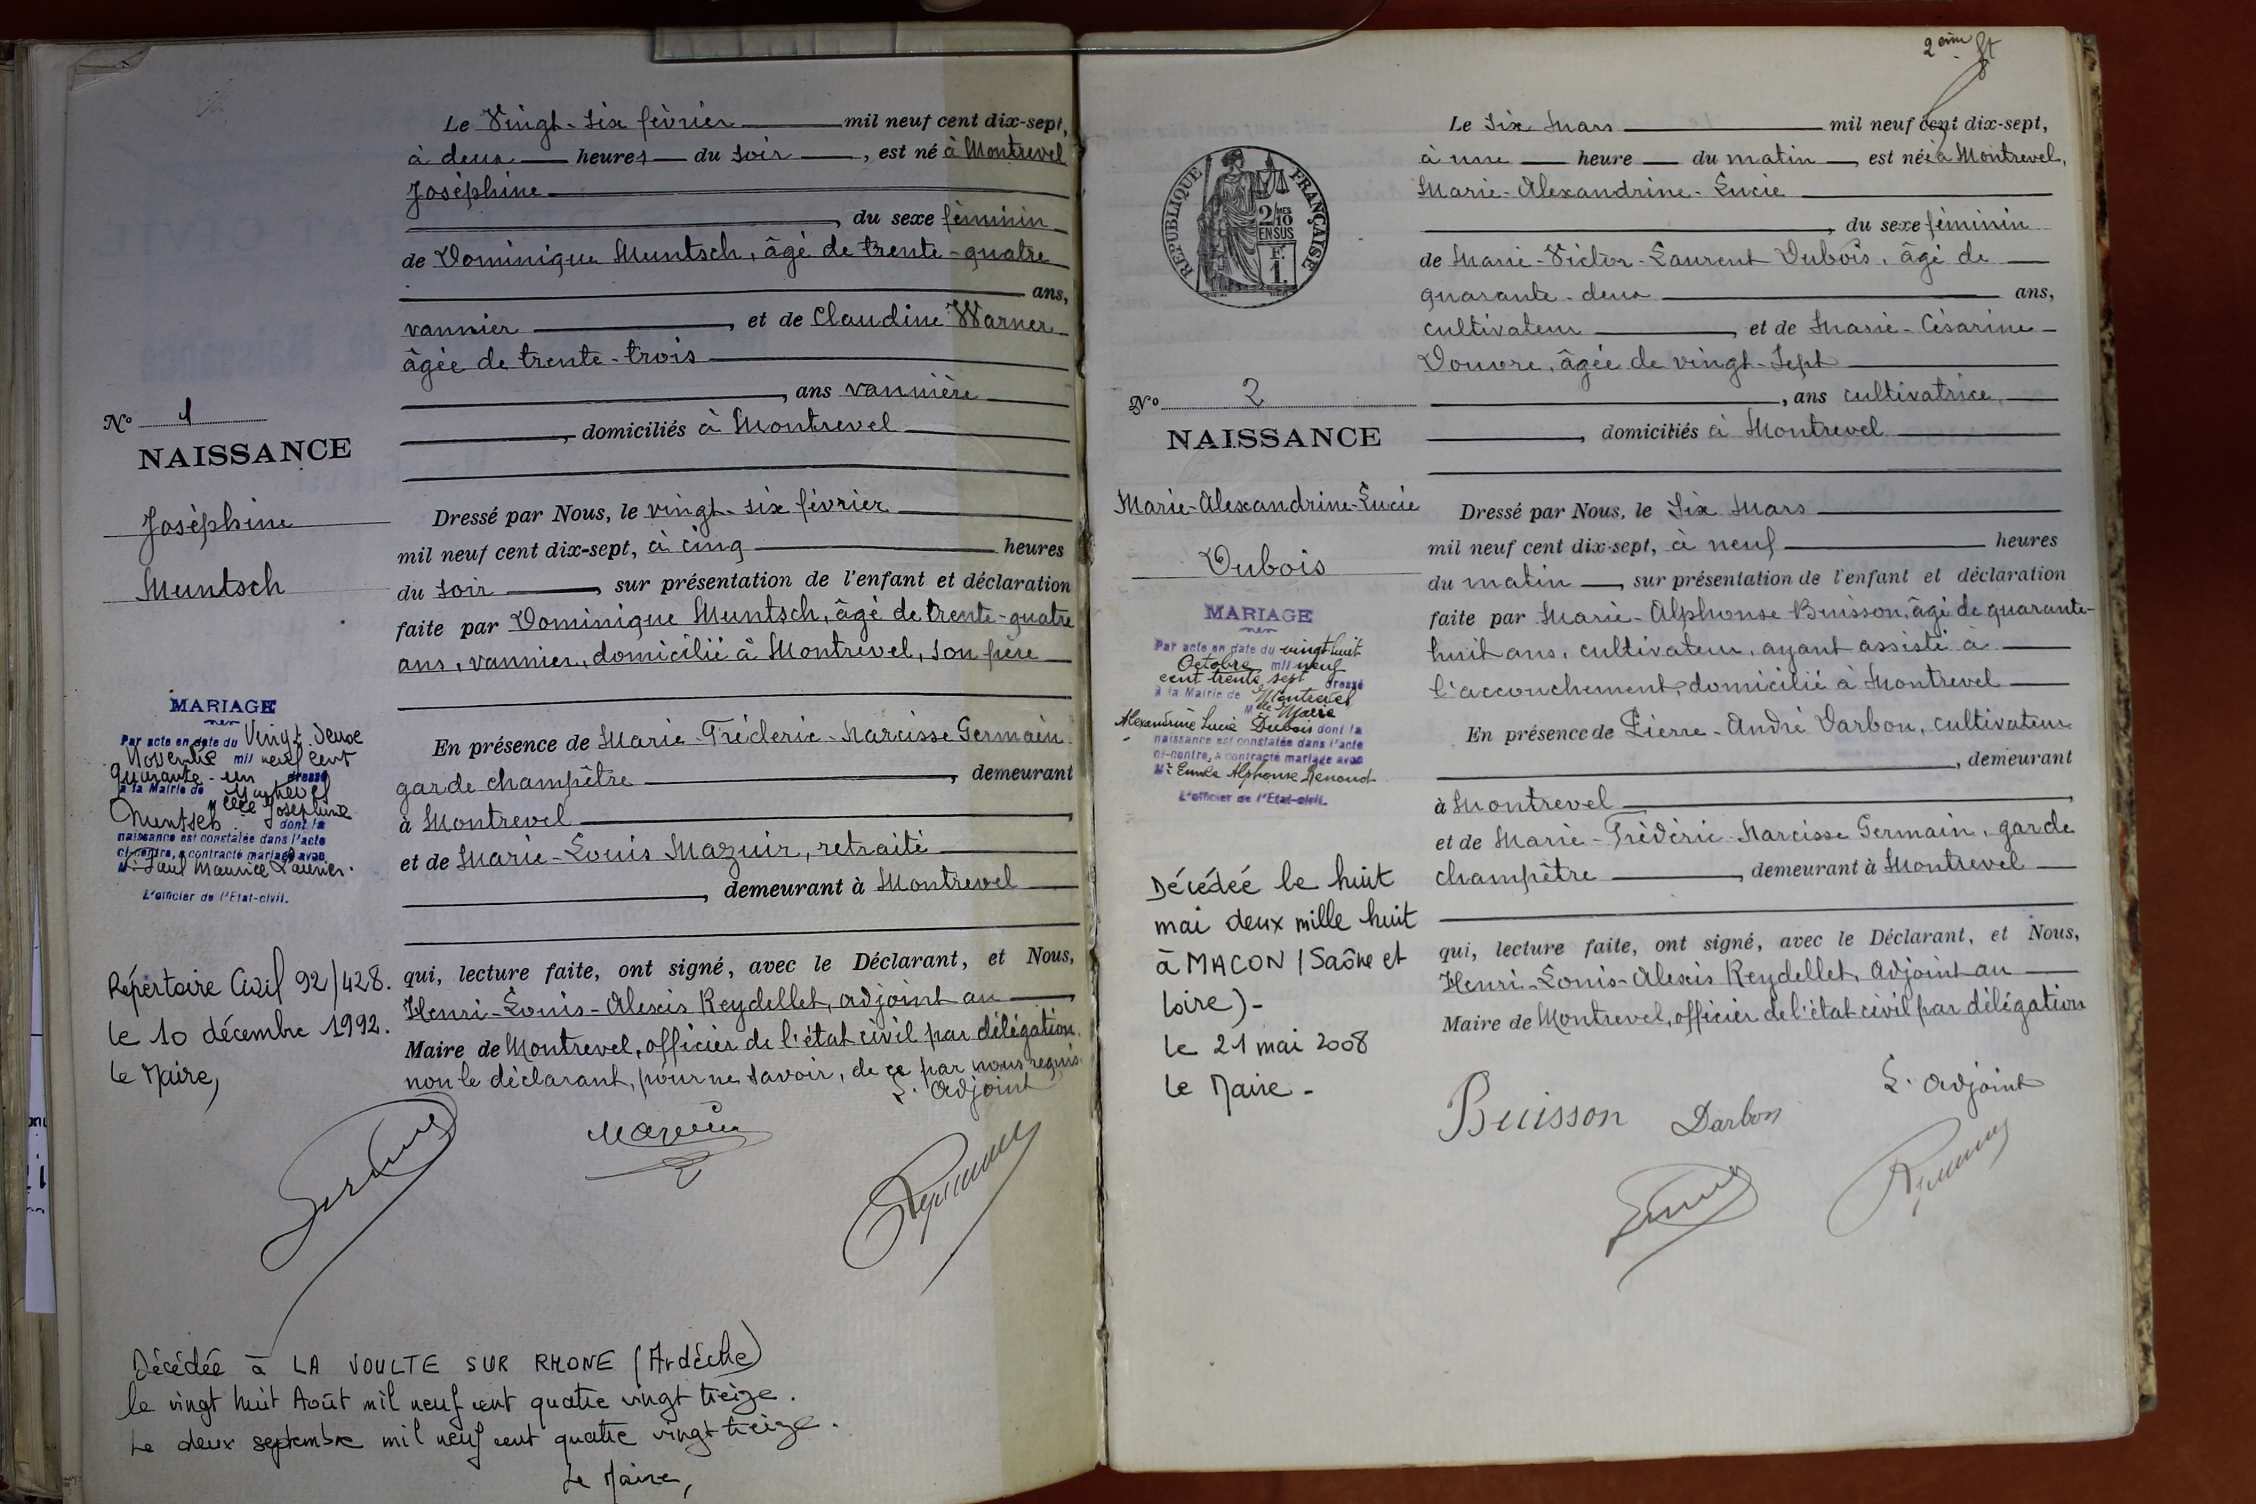 Le Vingt-six février mil neuf cent dix-sept,
à deux heures du soir, est né à Montrevel
Joséphine
, du sexe féminin
de Dominique Muntsch, âgé de trente-quatre
ans,
vannier, et de Claudine Warner
âgée de trente-trois
, ans vannière
, domiciliés à Montrevel
No 1
NAISSANCE
Joséphine
Muntsch
Dressé par Nous, le vingt-six février
mil neuf cent dix-sept, à cinq heures
du soir, sur présentation de l'enfant et déclaration
faite par Dominique Muntsch, âgé de trente-quatre
ans, vannier, domicilié à Montrevel, son père
En présence de Marie-Fréderic-Narcisse Germain
garde champêtre, demeurant
à Montrevel
et de Marie-Louis Mazuir, retraité
, demeurant à Montrevel
qui, lecture faite, ont signé, avec le Déclarant, et Nous,
Henri-Louis-Alexis Reydellet, adjoint au
Maire de Montrevel, officier de l'état civil par délégation,
non le déclarant, pour ne savoir, de ce par nous requis.
L'adjoint
MARIAGE
Par acte en date du Vingt deux
Novembre mil neuf cent
quarante-un dressé
à la Mairie de Montrevel
Melle Joséphine
Muntsch dont la
naissance est constatée dans l'acte
ci-contre, a contracté mariage avec
Mr Paul Maurice
L'officier de l'Etat-civil.
Répertoire Civil 92/428.
le 10 décembre 1992.
Le Maire,
Décédée à LA VOULTE SUR RHONE (Ardèche)
le vingt huit Août mil neuf cent quatre vingt treize.
Le deux septembre mil neuf cent quatre vingt treize.
Le Maire,
2ème ft
Le Six Mars mil neuf cent dix-sept,
à une heure du matin, est née à Montrevel,
Marie-Alexandrine-Lucie
, du sexe féminin
de Marie-Victor-Laurent Dubois, âgé de
quarante-deux ans,
cultivateur, et de Marie-Césarine
Douvre, âgée de vingt-sept
, ans cultivatrice,
, domiciliés à Montrevel
RÉPUBLIQUE FRANÇAISE
2/10 MES
EN SUS
F.
1.
No 2
NAISSANCE
Marie-Alexandrine-Lucie
Dubois
Dressé par Nous, le Six Mars
mil neuf cent dix-sept, à neuf heures
du matin, sur présentation de l'enfant et déclaration
faite par Marie-Alphonse Buisson, âgé de quarante-
huit ans, cultivateur, ayant assisté à
l'accouchement, domicilié à Montrevel
En présence de Pierre-André Darbon, cultivateur
, demeurant
à Montrevel
et de Marie-Frédéric-Narcisse Germain, garde
champêtre, demeurant à Montrevel
qui, lecture faite, ont signé, avec le Déclarant, et Nous,
Henri-Louis-Alexis Reydellet, adjoint au
Maire de Montrevel, officier de l'état civil par délégation
L'adjoint
Buisson Darbon
MARIAGE
Par acte en date du vingt huit
Octobre mil neuf
cent trente sept dressé
à la Mairie de Montrevel
Melle Marie
Alexandrine Lucie Dubois dont la
naissance est constatée dans l'acte
ci-contre, a contracté mariage avec
Mr Emile Alphonse Renoud
L'officier de l'Etat-civil.
Décédée le huit
mai deux mille huit
à MACON (Saône et
Loire)-
le 21 mai 2008
Le Maire-